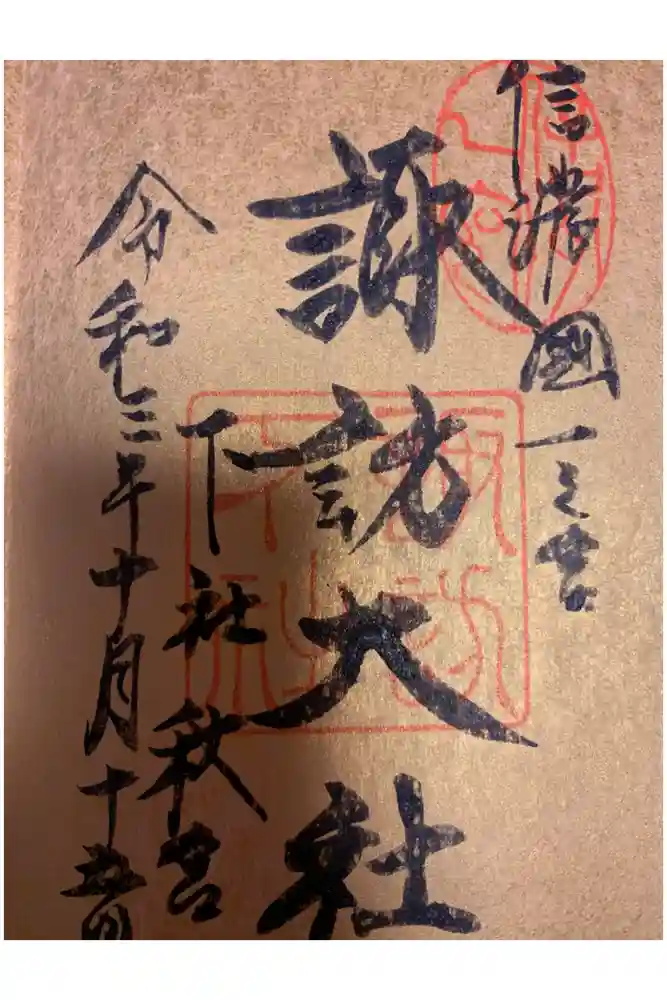 信濃國一之宮
諏訪大社
下社秋宮
令和三年十月十五日